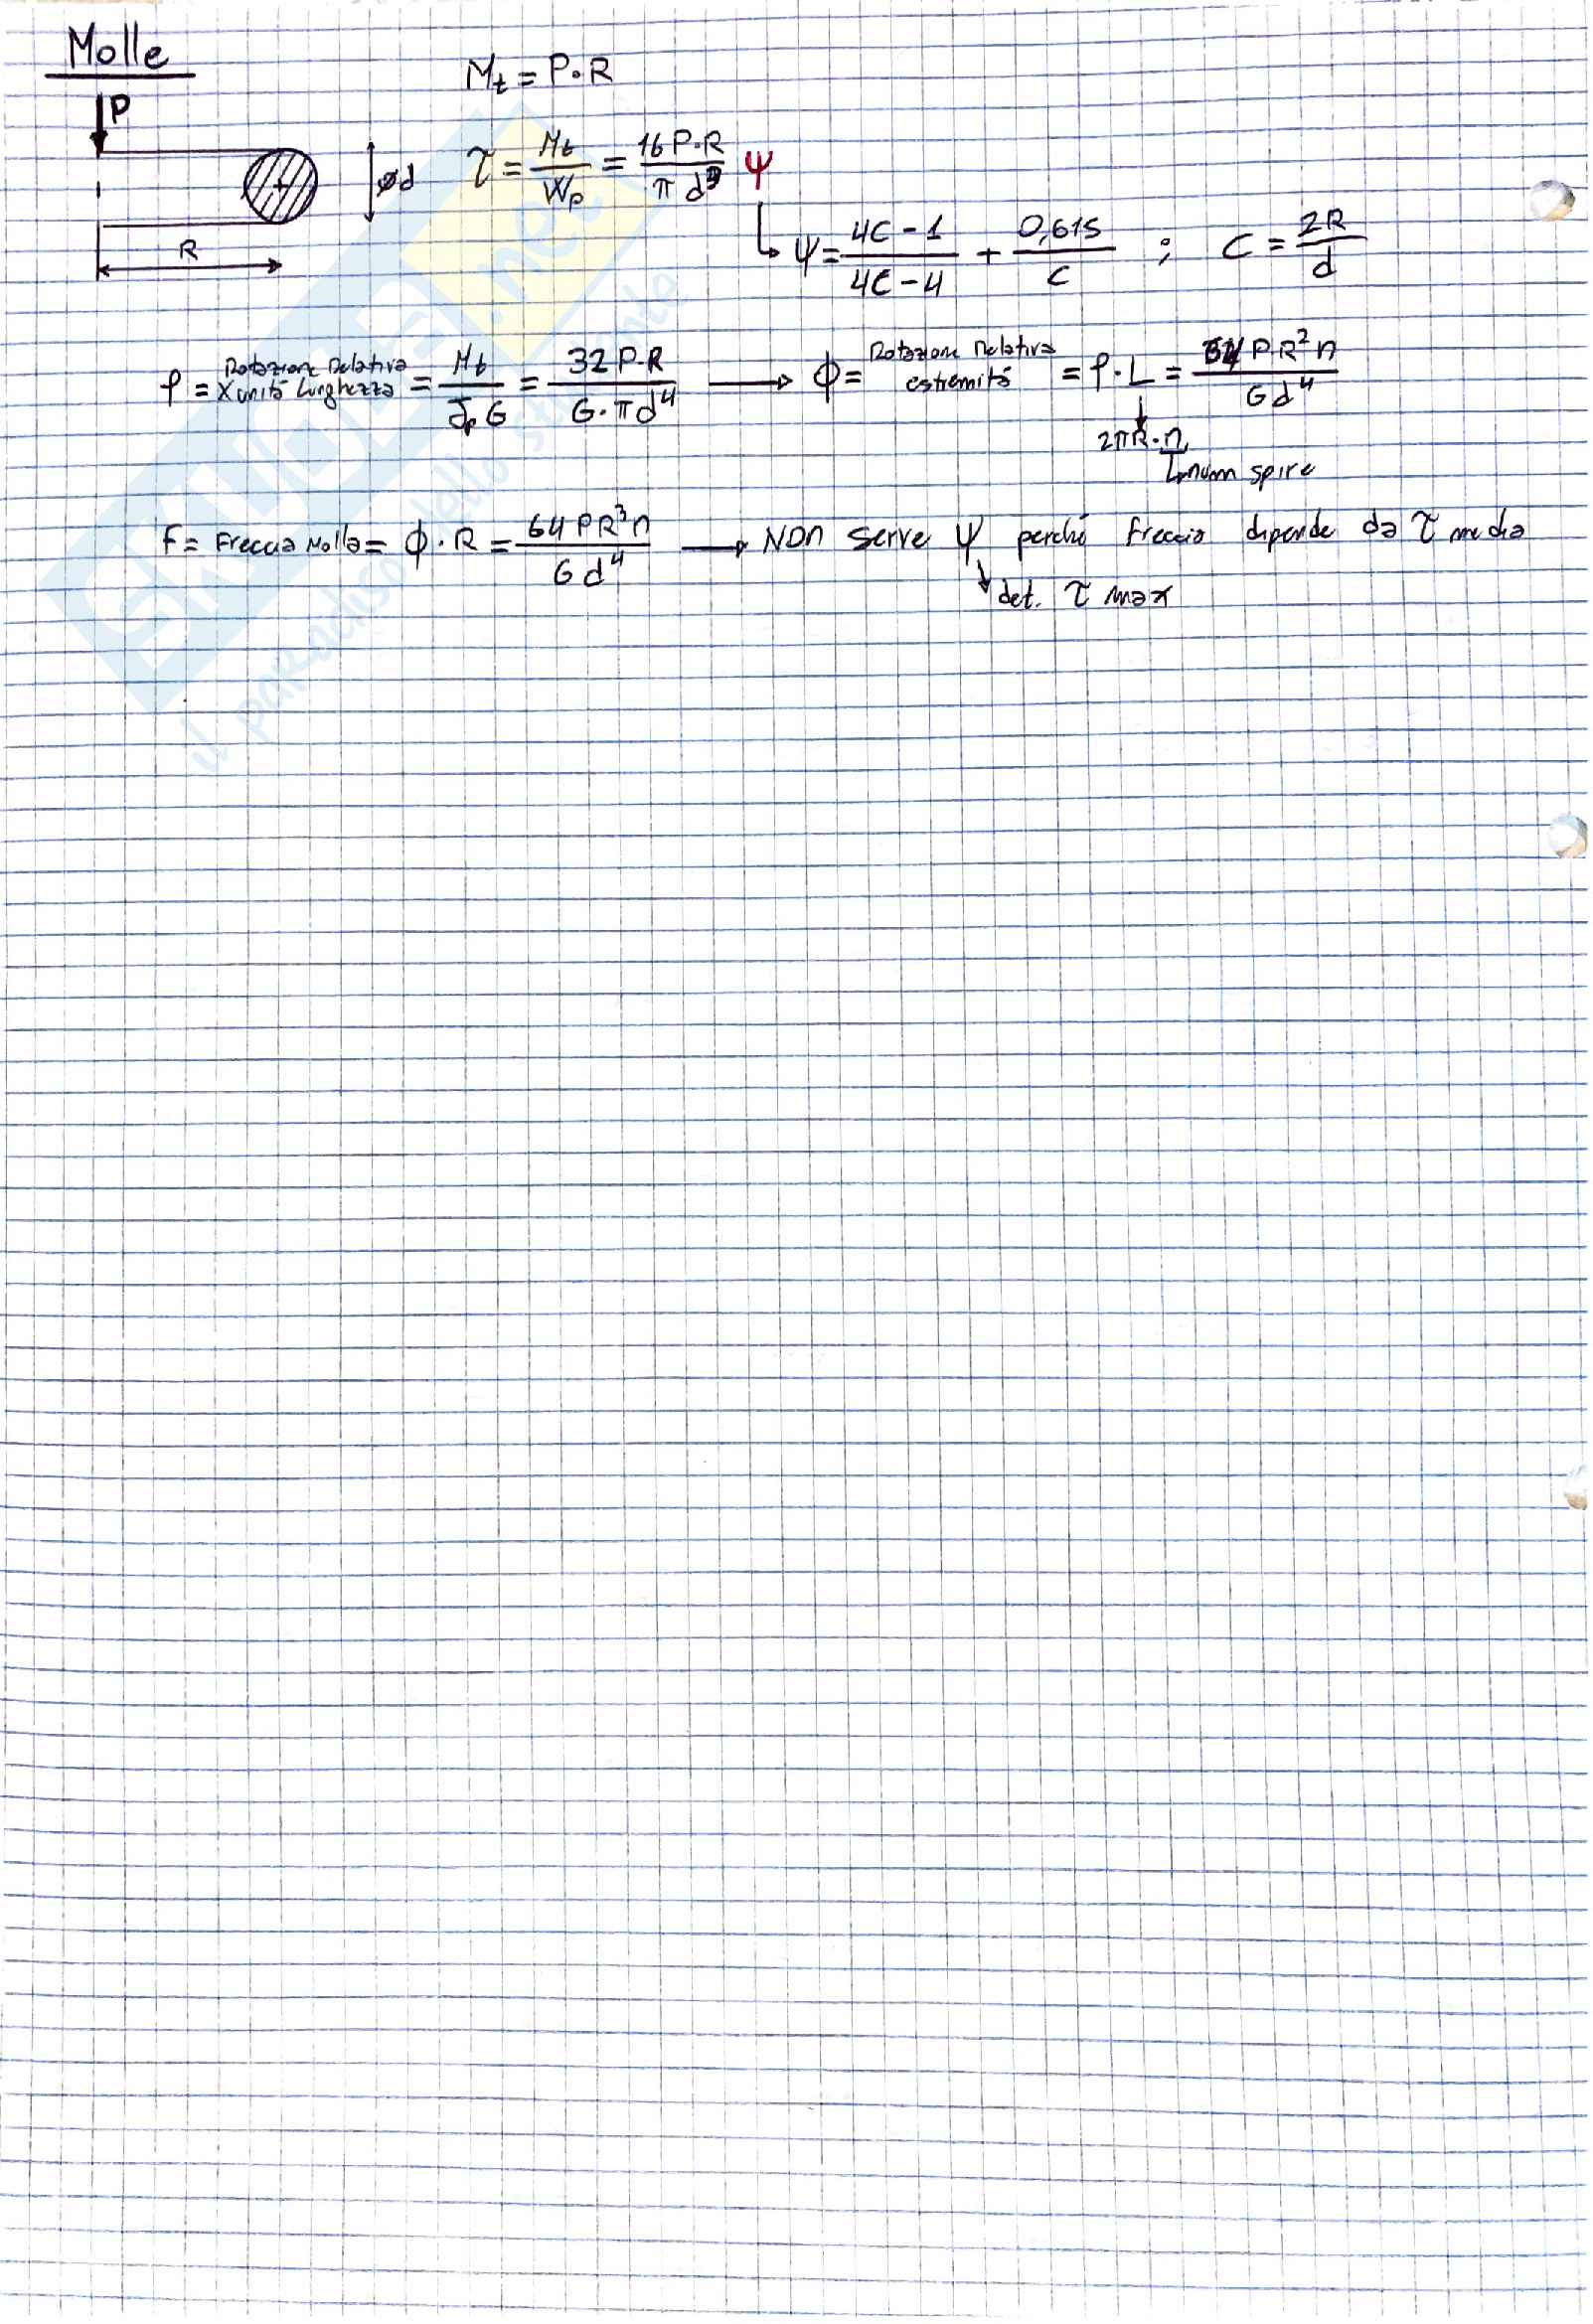 Molle
P
M_t = P·R
τ = M_t / W_p = 16 P·R / π d³ ψ
ød
R
ψ = (4C - 1) / (4C - 4) + 0,615 / C ; C = 2R / d
ρ = Rotazione Relativa X unitá Lunghezza = M_t / J_p G = 32 P·R / G·π d⁴ → ϕ = Rotazione Relativa estremitá = ρ·L = 64 P R² n / G d⁴
2πR·n
num spire
F = Freccia Molla = ϕ·R = 64 P R³ n / G d⁴ → NON serve ψ perché freccia dipende da τ media
det. τ max
SKUOLA.net
il paradiso dello studente